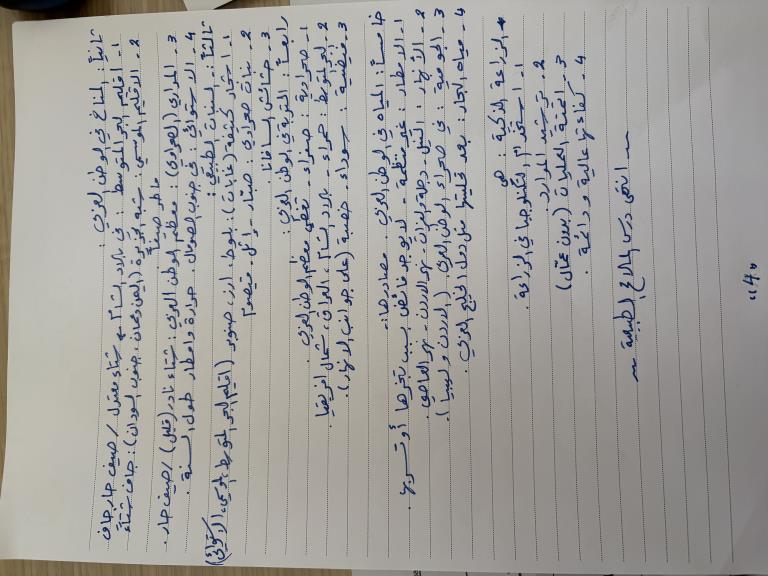 ثانياً: المناخ في الوطن العربي:
1- اقليم البحر المتوسط: في بلاد الشام ← شتاء معتدل / صيف حار جاف
2- الاقليم الموسمي: شبه الجزيرة (اليمن وعمان، جنوب السودان): جاف شتاءً
ماطر صيفاً
3- المداري (الصحراوي): معظم الوطن العربي: شتاء نادر (قليل) / صيف حار.
4- الاستوائي: في جنوب الصومال. حرارة وامطار طول السنة.
ثالثاً: النبات الطبيعي:
1- اشجار كثيفة (غابات): بلوط، ارز، صنوبر (اقليم البحر المتوسط، الموسمي، الاستوائي)
2- نبات صحراوي: صبار - واثل، قيصوم
3- حشائش السافانا.
رابعاً: التربة في الوطن العربي:
1- صحراوية: صفراء - تغطي معظم الوطن العربي.
2- المتوسط: حمراء - بلاد الشام، العراق، شمال افريقيا.
3- فيضية: سوداء، خصبة (على جوانب الانهار).
خامساً: المياه في الوطن العربي. مصادرها:
1- الامطار: غير منتظمة - لا يوجد فائض بسبب تبخرها أو تسربها.
2- الأنهار: النيل - دجلة والفرات - نهر الاردن - نهر العاصي.
3- الجوفية: في صحراء الوطن العربي (الاردن وليبيا).
4- مياه البحار: بعد تحليتها مثل دول الخليج العربي.
* الزراعة الذكية: هي
1- استخدام التكنولوجيا في الزراعة.
2- ترشيد الموارد
3- اتمتة العمليات (بدون عمّال)
4- كفاءة عالية ودائمة.
~ انتهى درس الملامح الطبيعية ~
"4"